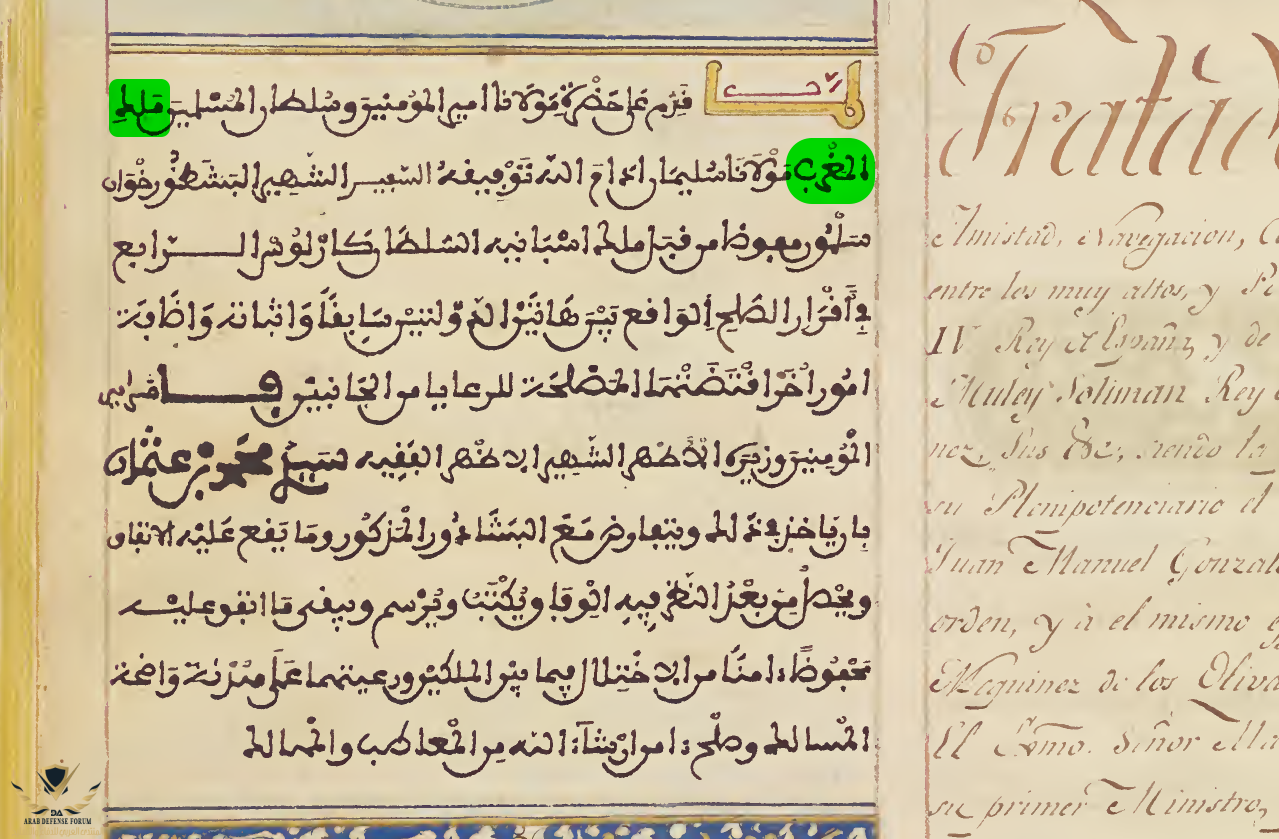 لما
قدم على حضرة مولانا امير المومنين وسلطان المسلمين ملك
المغرب مولانا سليمان ادام الله توفيقه السفير الشهير البشظور خوان
من قبل ملك اسبانيه السلطان كارلوش الرابع
في اقرار الصلح الواقع بين هاتين الدولتين سابقا واثباته واضافة
امور اخر اقتضتها المصلحة للرعايا من الجانبين
المومنين وزيره الشهير الفقيه السيد محمد بن عثمان
في ذلك ويتفاوض مع البشادور المذكور وما يقع عليه الاتفاق
من بعد النظر فيه الوفا ويكتب ويرسم ويبقى ما اتفقو عليه
محفوظا امنا من الاختلال فيما بين الملكين ورعيتهما على واضحة
المسالك وصلح ان شاء الله من المعاطب والمهالك
Tratad
Amistad, Navegacion, C
entre los muy altos, y Po
IV Rey de España, y de
Muley Soliman Rey
nez, Sus &c, siendo la
su Plenipotenciario el
Juan Manuel Gonzal
orden, y à el mismo
Mequinez de los Oliva
El Exmo. Señor
su primer Ministro,
DA
ARAB DEFENSE FORUM